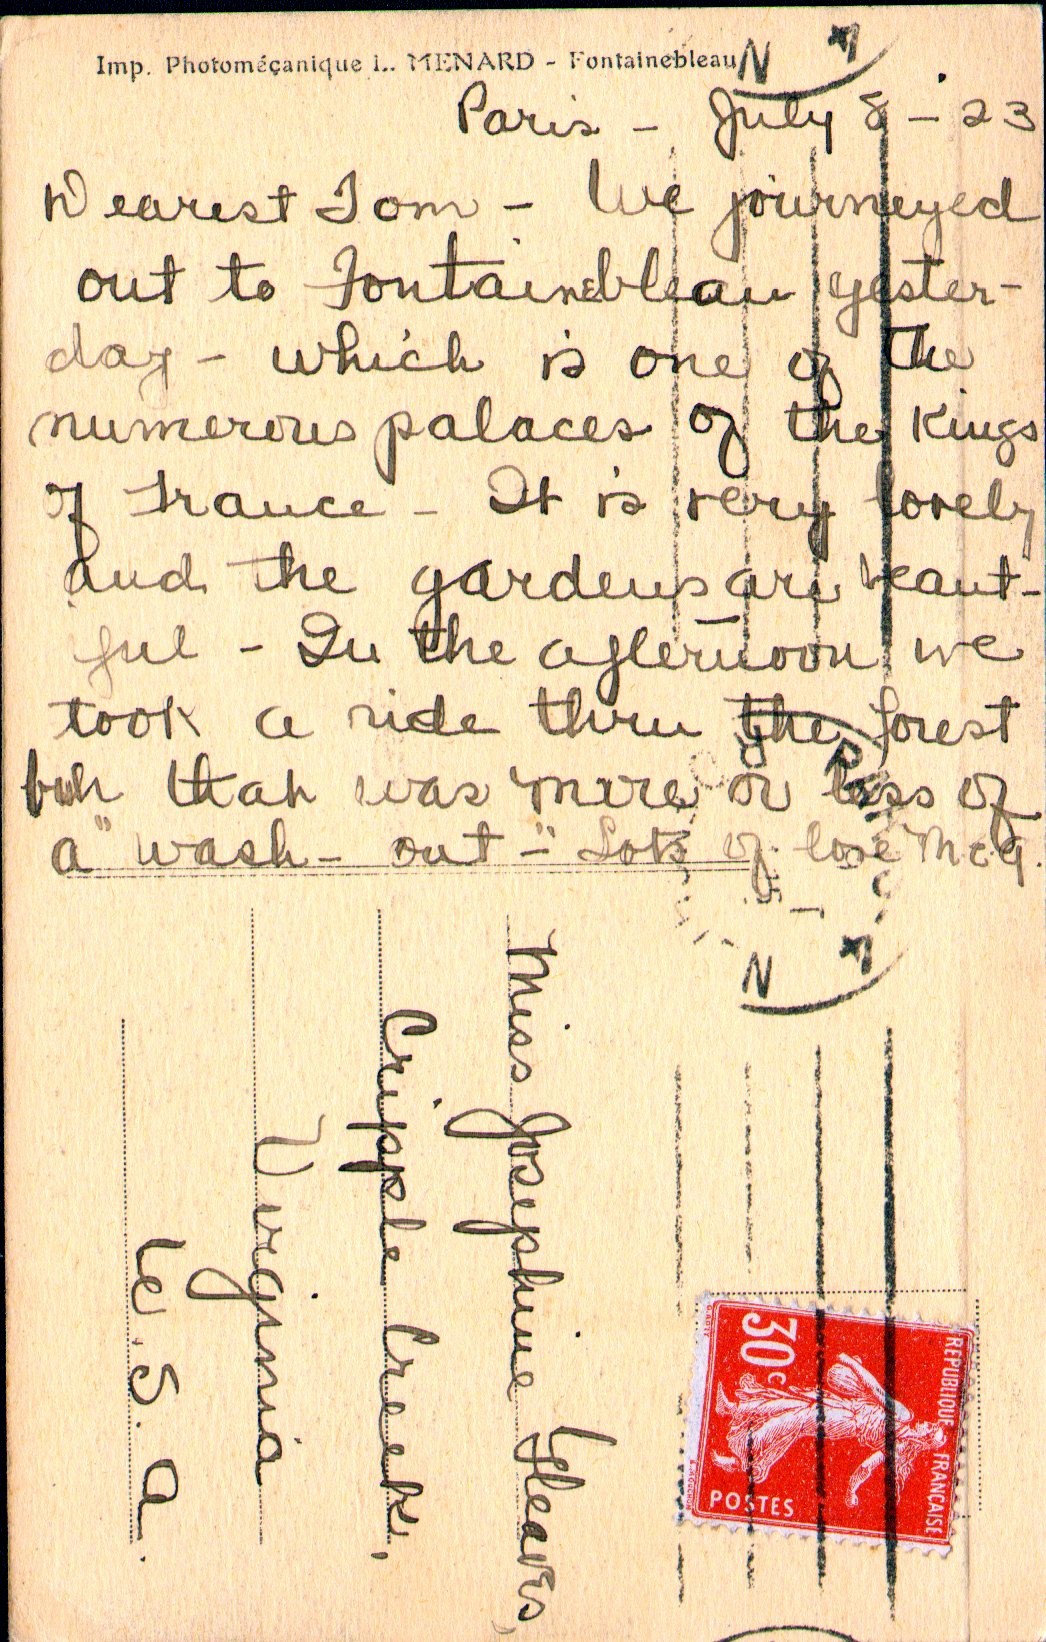 Imp. Photomécanique L. MENARD - Fontainebleau
Paris - July 8 - 23
Dearest Tom - We journeyed
out to Fontainebleau yester-
day - which is one of the
numerous palaces of the Kings
of France - It is very lovely
and the gardens are beaut-
ful - In the afternoon we
took a ride thru the forest
but that was more or less of
a "wash - out -" Lots of love McG.
Miss Josephine Gleaves,
Cripple Creek,
Virginia
U. S. A.
30c
REPUBLIQUE FRANÇAISE
POSTES